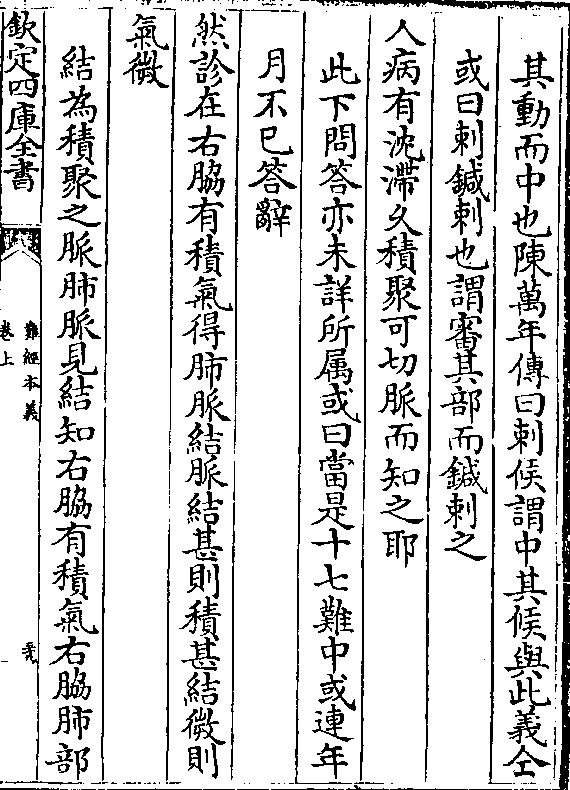 其動而中也陳萬年傳曰刺候謂中其候與此義仝
或曰刺鍼刺也謂審其部而鍼刺之
人病有沈滯久積聚可切脈而知之耶
此下問答亦未詳所属或曰當是十七難中或連年
月不已答辭
然診在右脇有積氣得肺脈結脈結甚則積甚結微則
氣微
結為積聚之脈肺脈見結知右脇有積氣右脇肺部
欽定四庫全書
難經本義
卷上